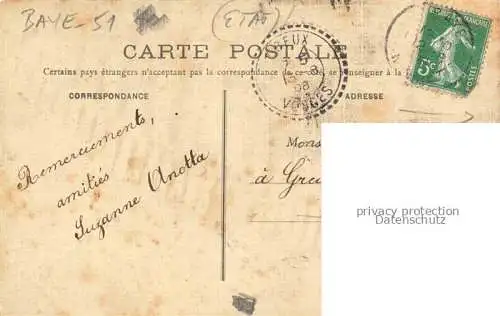 BAYE-51
(ETAT)
CARTE POSTALE
Certains pays étrangers n'acceptant pas la correspondance de ce côté, se renseigner à la
CORRESPONDANCE
ADRESSE
EUX
08
VOSGES
5c
Remerciements,
amitiés
Suzanne Anotta
Mons
à Gre
privacy protection
Datenschutz